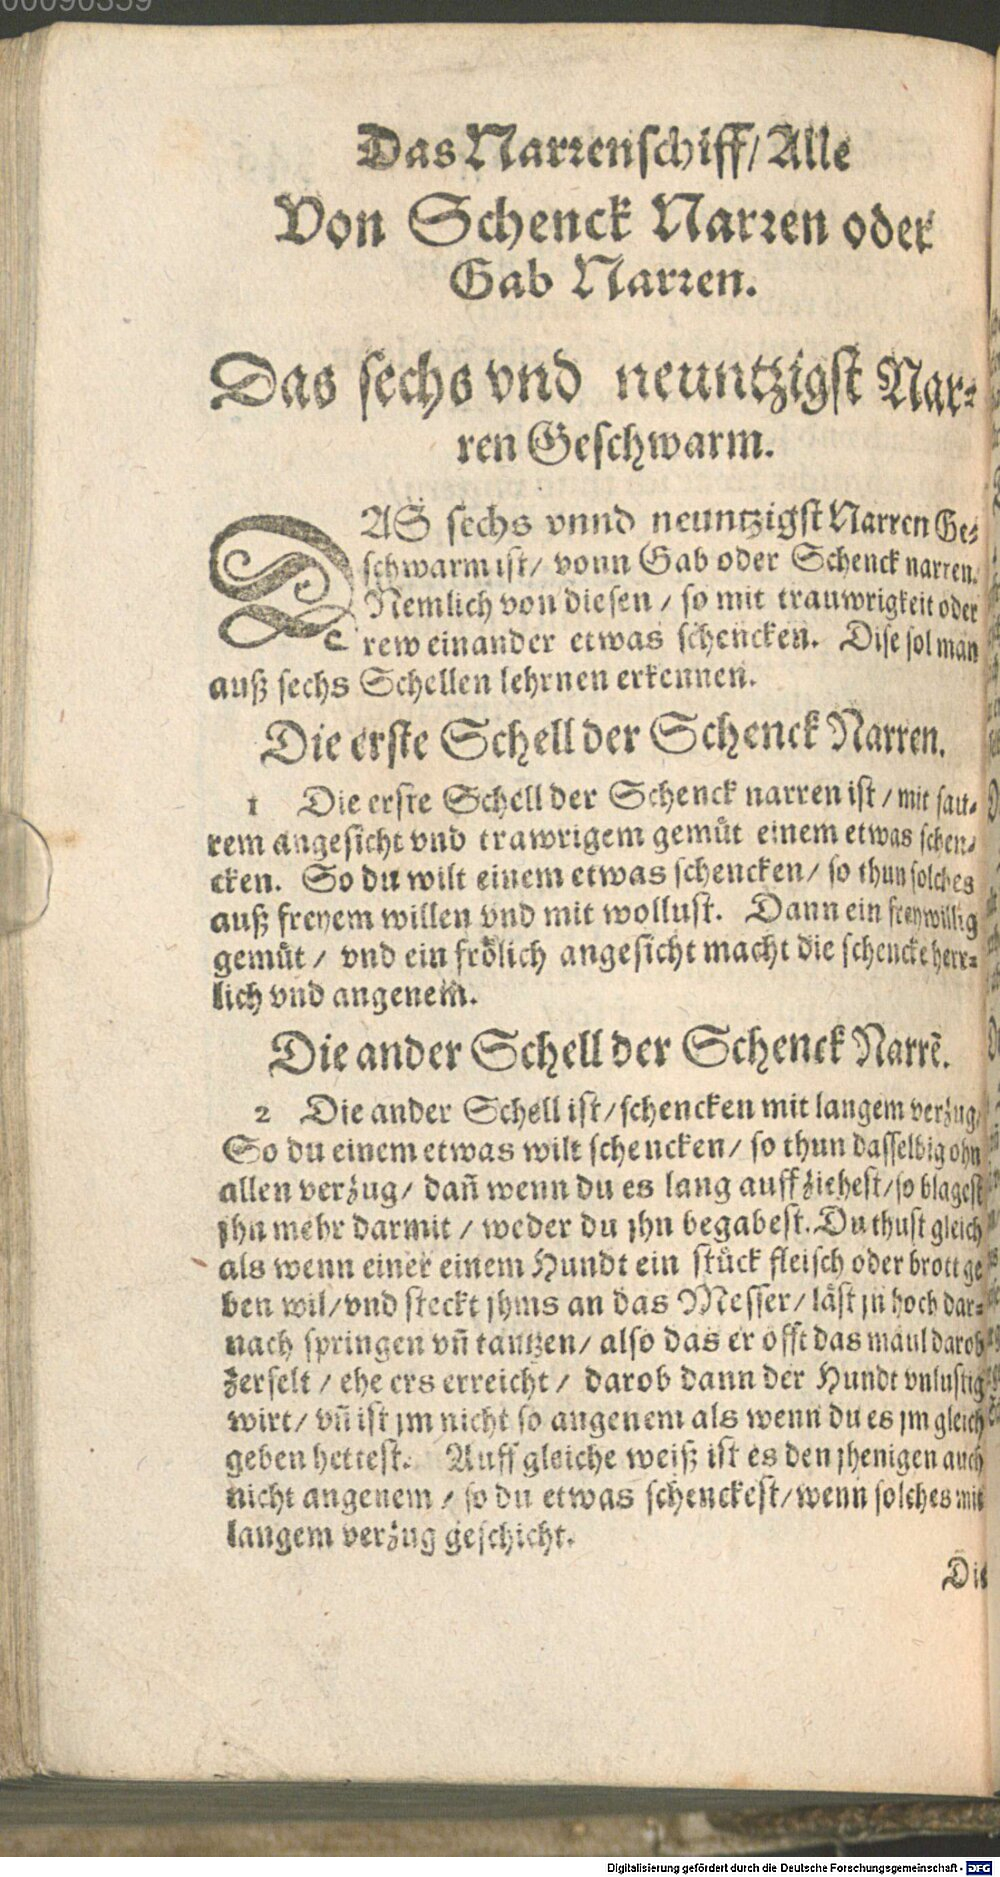 00090359
Das Narrenschiff/ Alle
Von Schenck Narren oder
Gab Narren.
Das sechs vnd neuntzigst Nar-
ren Geschwarm.
DAS sechs vnnd neuntzigst Narren Ge-
schwarm ist/ vonn Gab oder Schenck narren.
Nemlich von diesen / so mit trauwrigkeit oder
rew einander etwas schencken. Dise sol man
auß sechs Schellen lehrnen erkennen.
Die erste Schell der Schenck Narren.
1 Die erste Schell der Schenck narren ist / mit sau-
rem angesicht vnd trawrigem gemüt einem etwas schen-
cken. So du wilt einem etwas schencken/ so thun solches
auß freyem willen vnd mit wollust. Dann ein freywillig
gemüt / vnd ein frölich angesicht macht die schencke herr-
lich vnd angenem.
Die ander Schell der Schenck Narrẽ.
2 Die ander Schell ist/ schencken mit langem verzug/
So du einem etwas wilt schencken/ so thun dasselbig ohn
allen verzug/ dañ wenn du es lang auffziehest/ so blagest
jhn mehr darmit / weder du jhn begabest. Du thust gleich
als wenn einer einem Hundt ein stück fleisch oder brott ge
ben wil/ vnd steckt jhms an das Messer/ läst jn hoch dar-
nach springen vñ tantzen/ also das er offt das maul darob
zerfelt / ehe ers erreicht / darob dann der Hundt vnlustig
wirt/ vñ ist jm nicht so angenem als wenn du es jm gleich
geben hettest. Auff gleiche weiß ist es den jhenigen auch
nicht angenem / so du etwas schenckest/ wenn solches mit
langem verzug geschicht.
Die
Digitalisierung gefördert durch die Deutsche Forschungsgemeinschaft - DFG